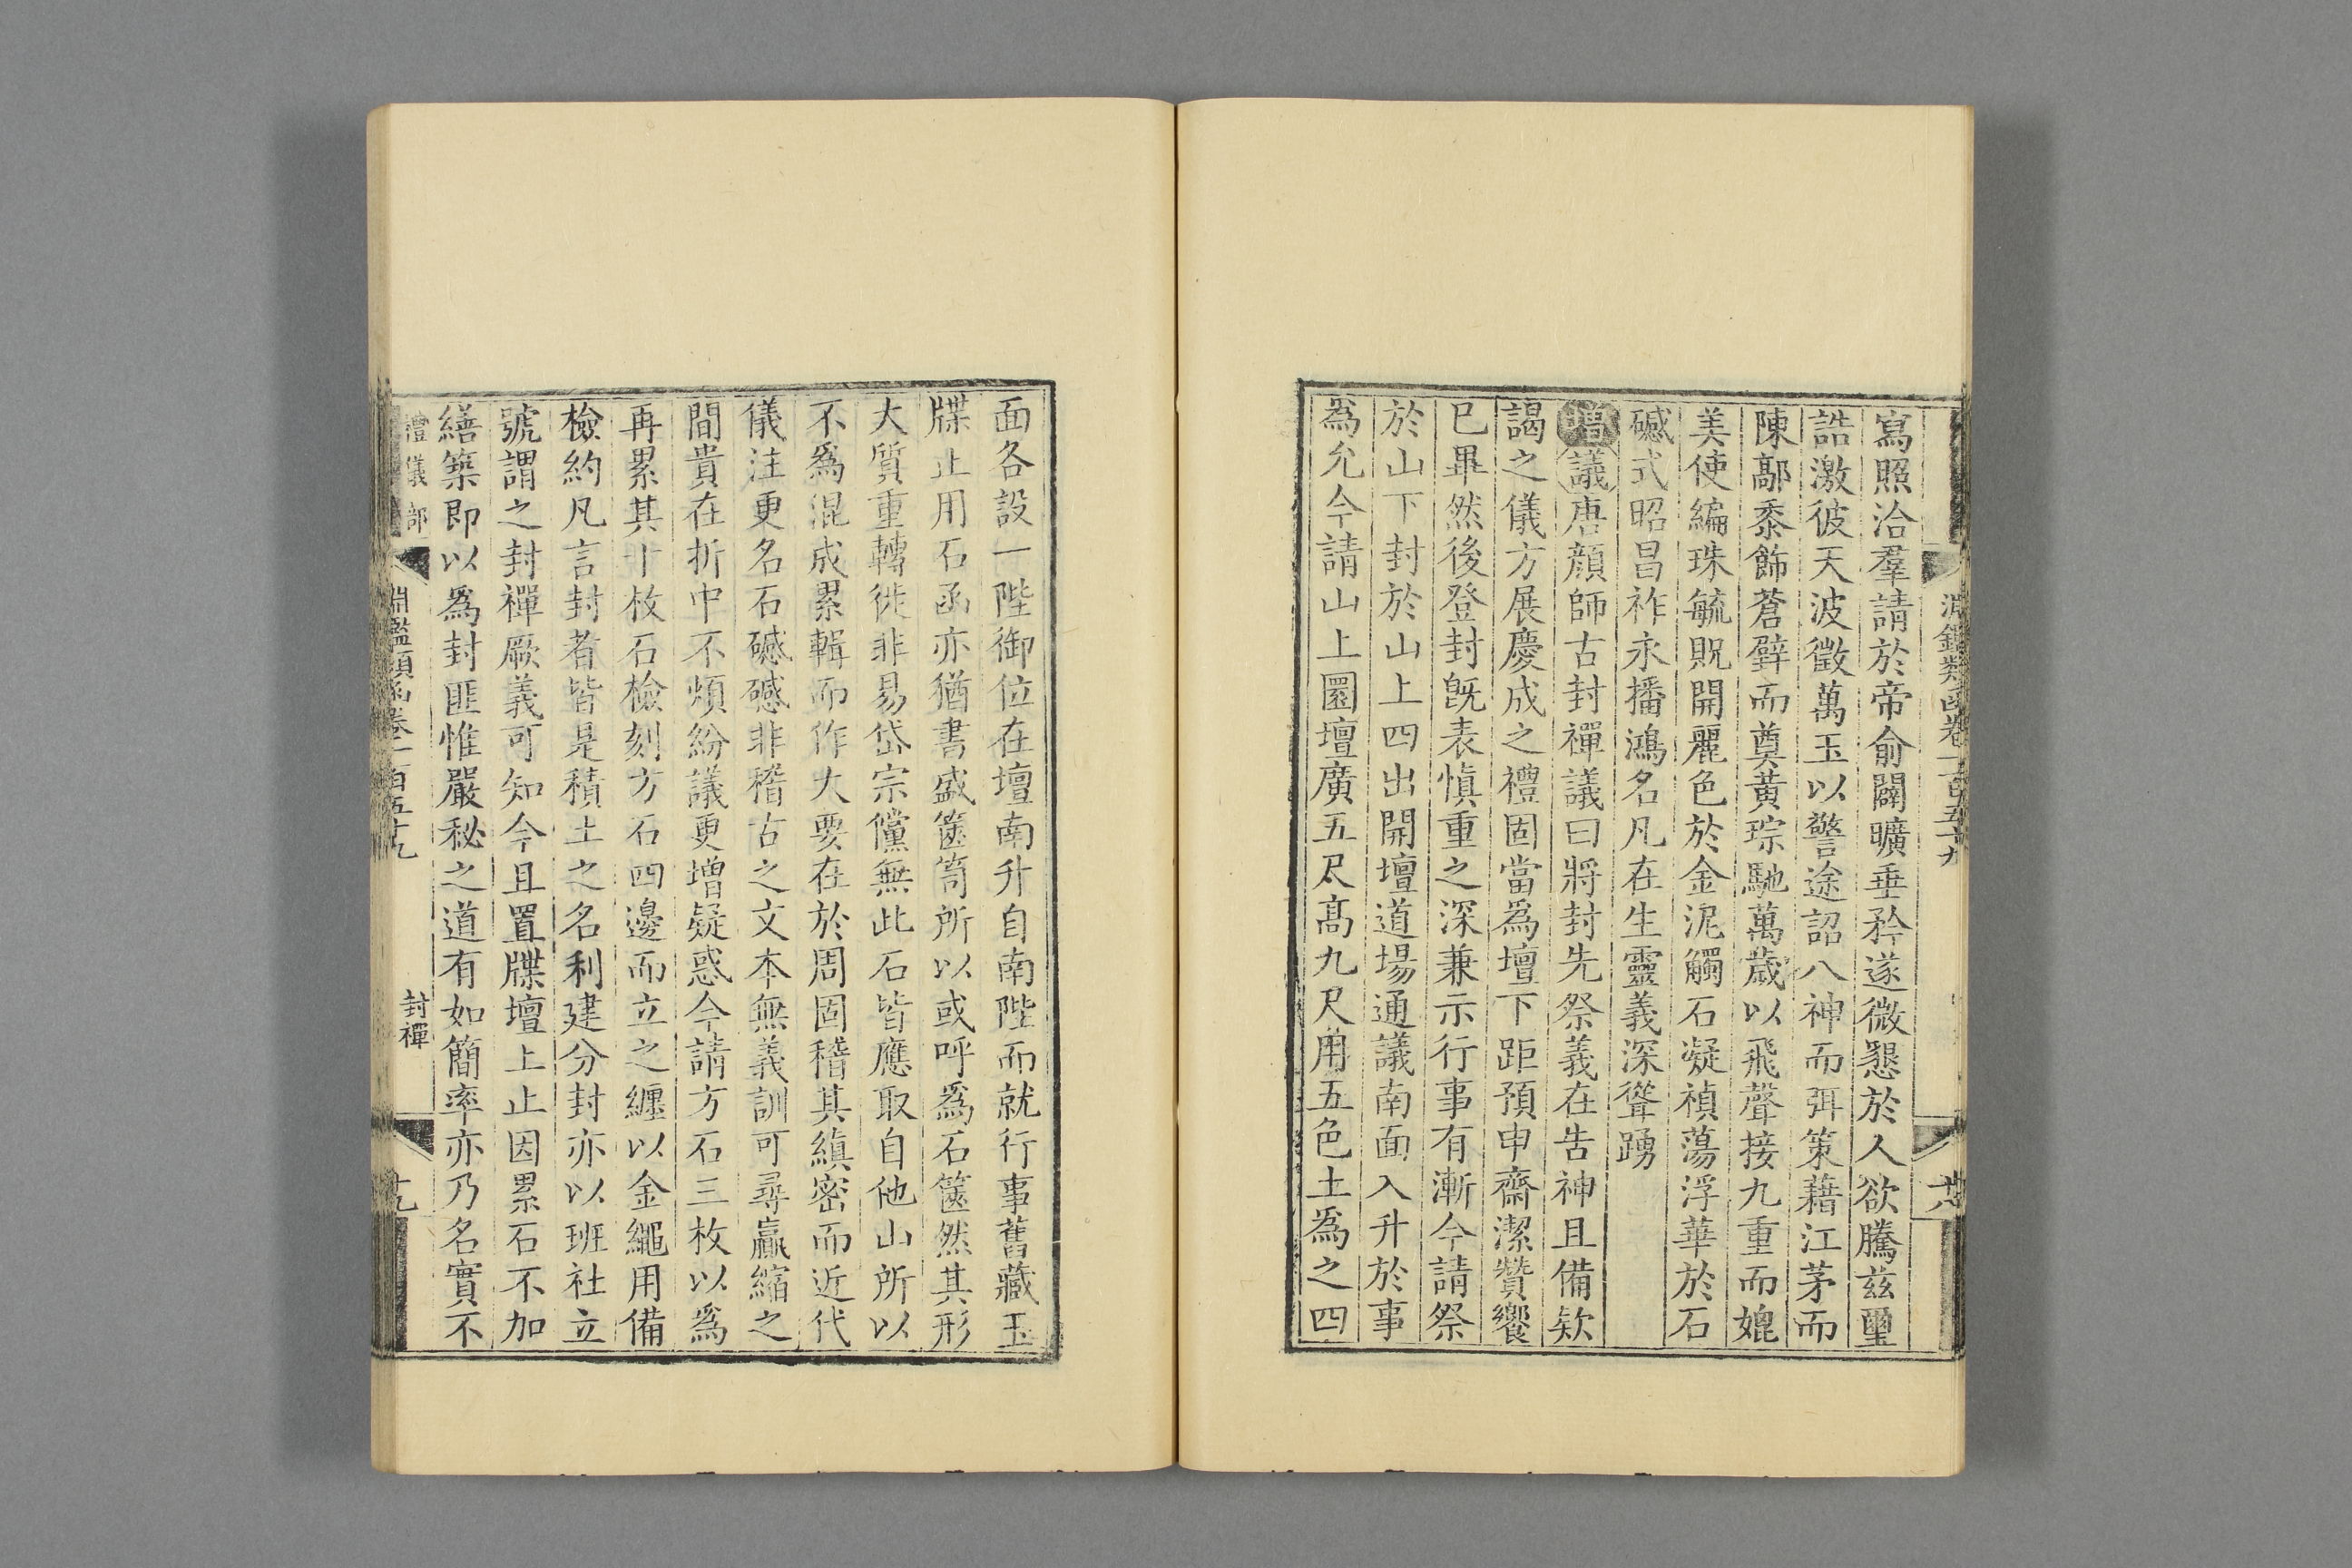 寫照洽羣請於帝俞闢曠垂矜遂微懇於人欲騰兹璽
誥激彼天波徵萬玉以警途詔八神而弭策藉江茅而
陳鄗黍飾蒼璧而奠黃琮馳萬歲以飛聲接九重而媲
美使編珠毓貺開麗色於金泥觸石凝禎蕩浮華於石
碱式昭昌祚永播鴻名凡在生靈義深聳踴
增議唐顔師古封禪議曰將封先祭義在告神且備欵
謁之儀方展慶成之禮固當爲壇下距預申齋潔贊饗
已畢然後登封旣表愼重之深兼示行事有漸今請祭
於山下封於山上四出開壇道場通議南面入升於事
爲允今請山上圜壇廣五尺高九尺用五色土爲之四
面各設一陛御位在壇南升自南陛而就行事舊藏玉
牒止用石函亦猶書盛篋笥所以或呼爲石篋然其形
大質重轉徙非易岱宗儻無此石皆應取自他山所以
不爲混成累輯而作大要在於周固稽其縝密而近代
儀注更名石礆礆非稽古之文本無義訓可尋贏縮之
間貴在折中不煩紛議更增疑惑今請方石三枚以爲
再累其十枚石檢刻方石四邊而立之纏以金繩用備
檢約凡言封者皆是積土之名利建分封亦以班社立
號謂之封禪厥義可知今且置牒壇上止因累石不加
繕築即以爲封匪惟嚴秘之道有如簡率亦乃名實不
禮儀部
淵鑑類函卷一百五十九
封禪